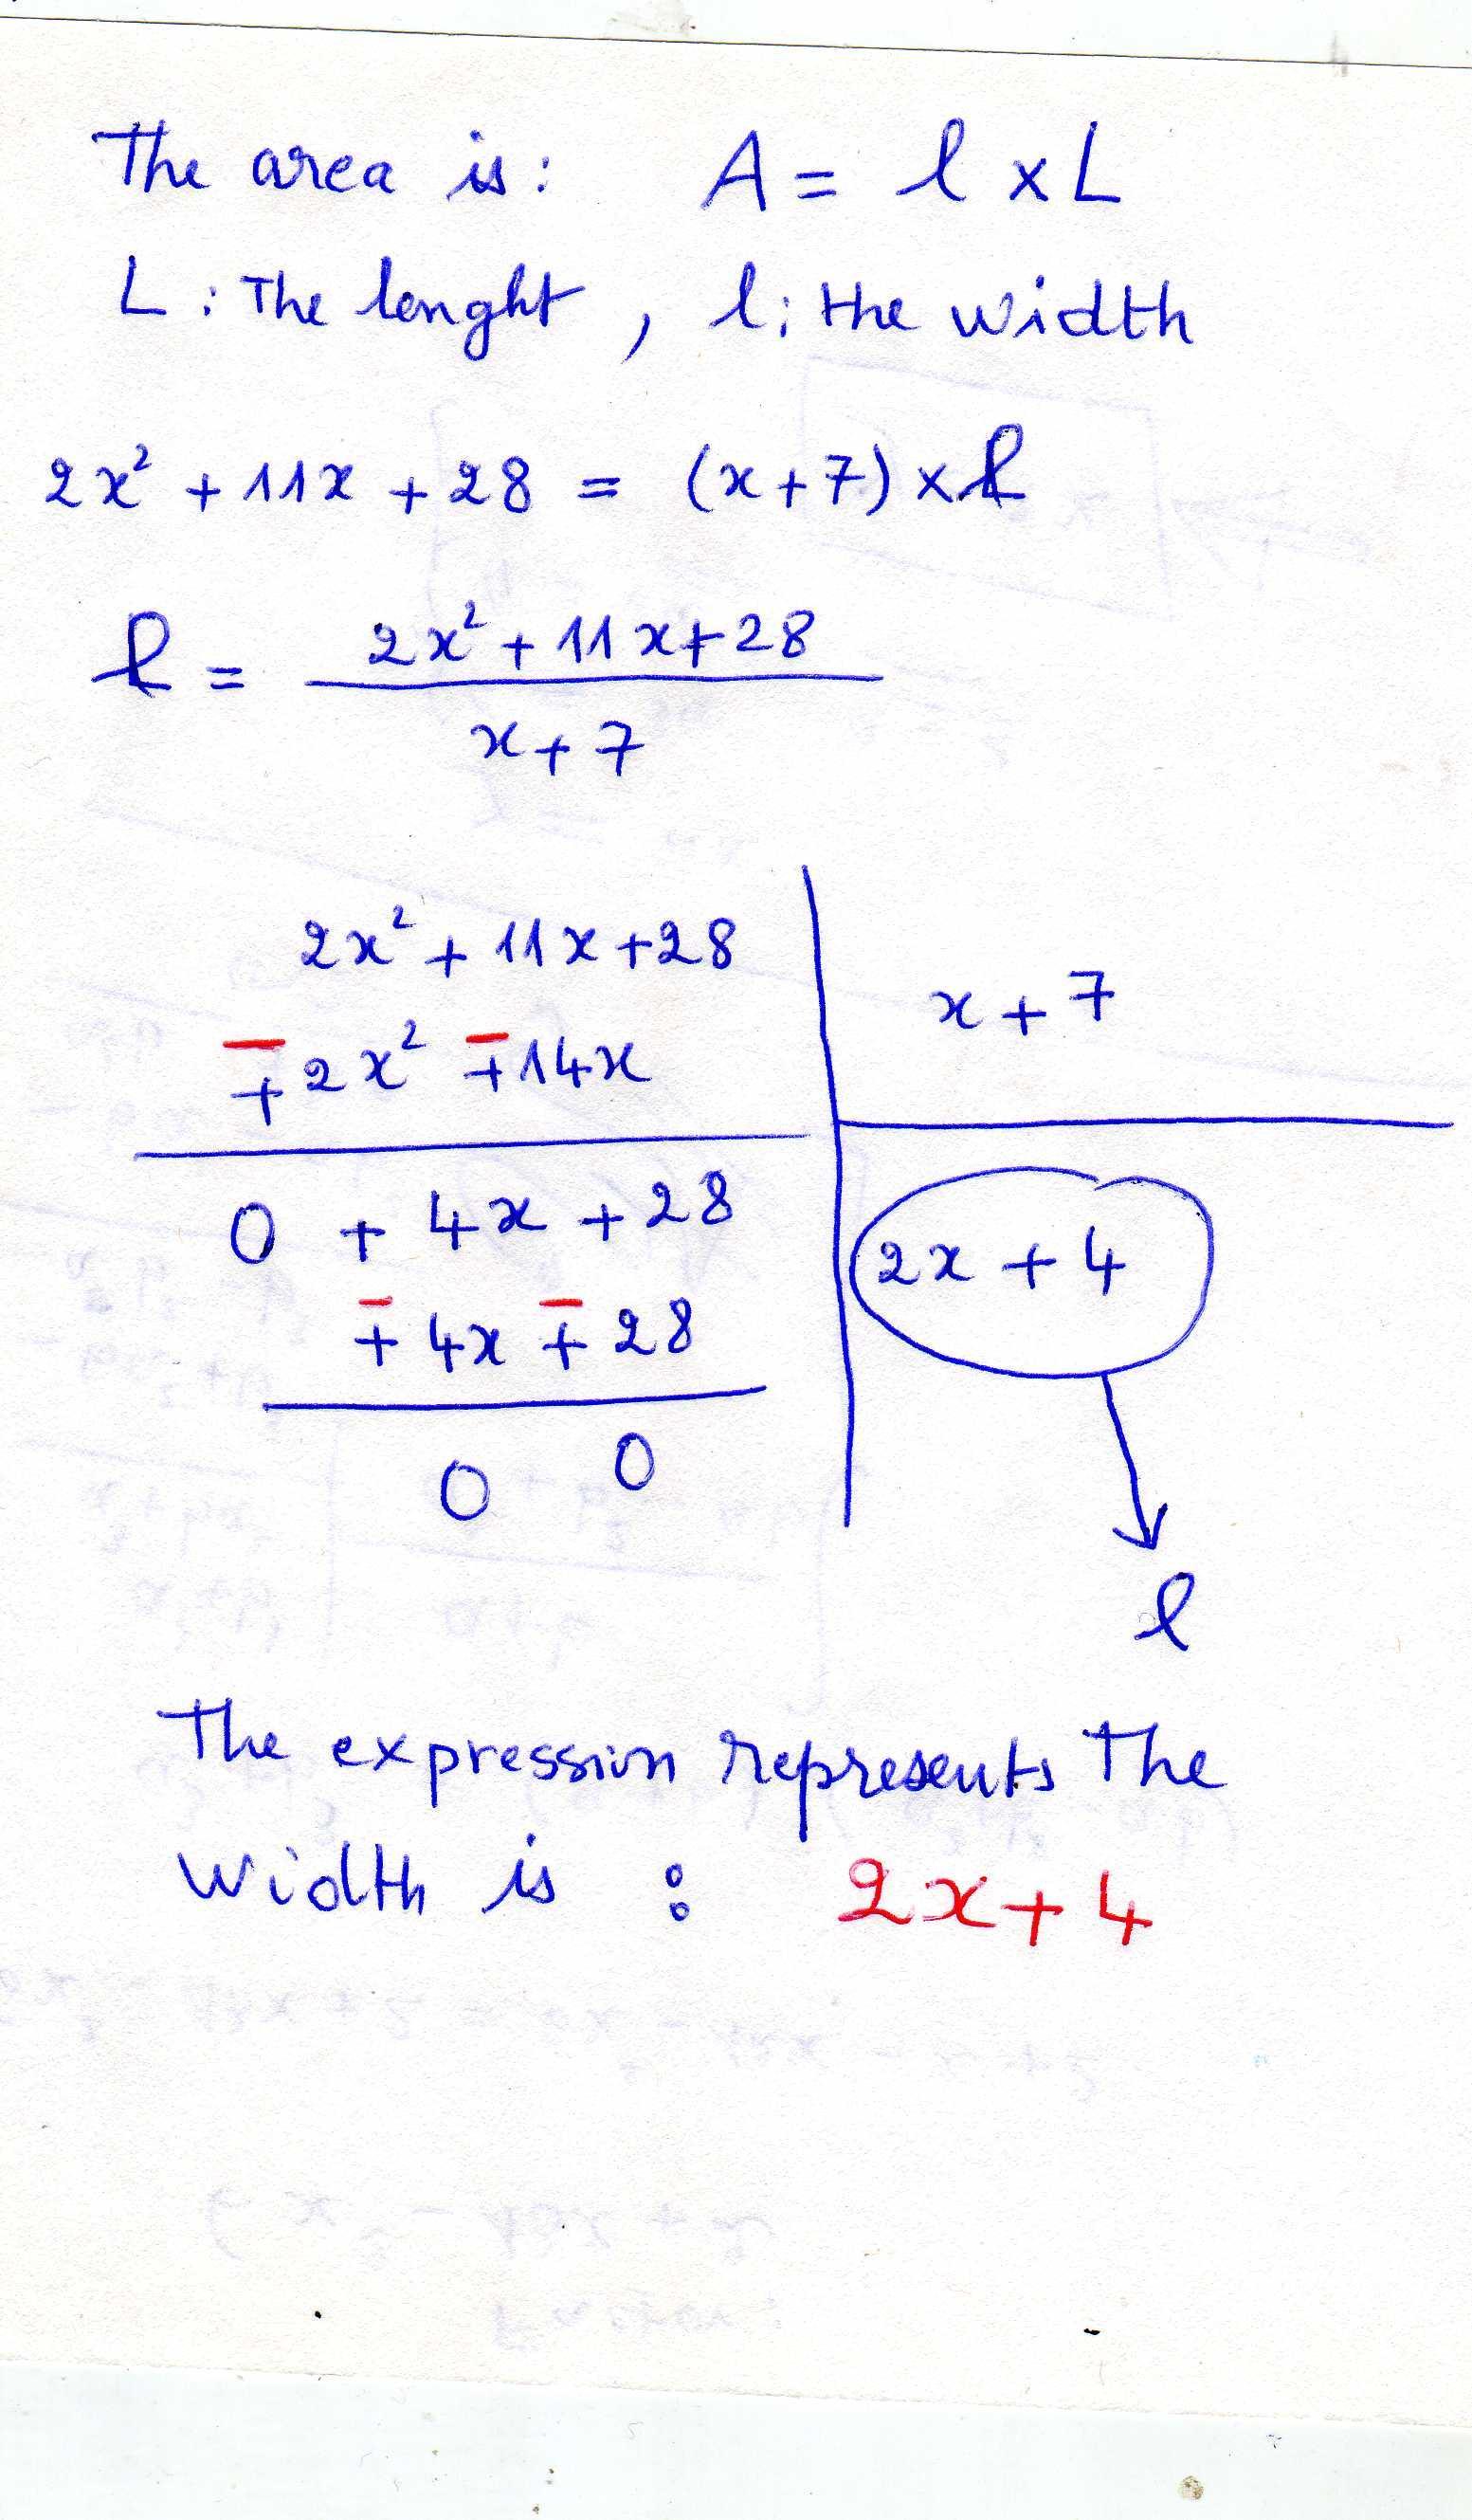 The area is: A = l x L
L : The lenght , l : the width
2x² + 11x + 28 = (x+7) x l
l = 2x² + 11x + 28
x + 7
2x² + 11x + 28
x + 7
∓ 2x² ∓ 14x
0 + 4x + 28
2x + 4
∓ 4x ∓ 28
0 0
l
The expression represents The
Width is : 2x + 4